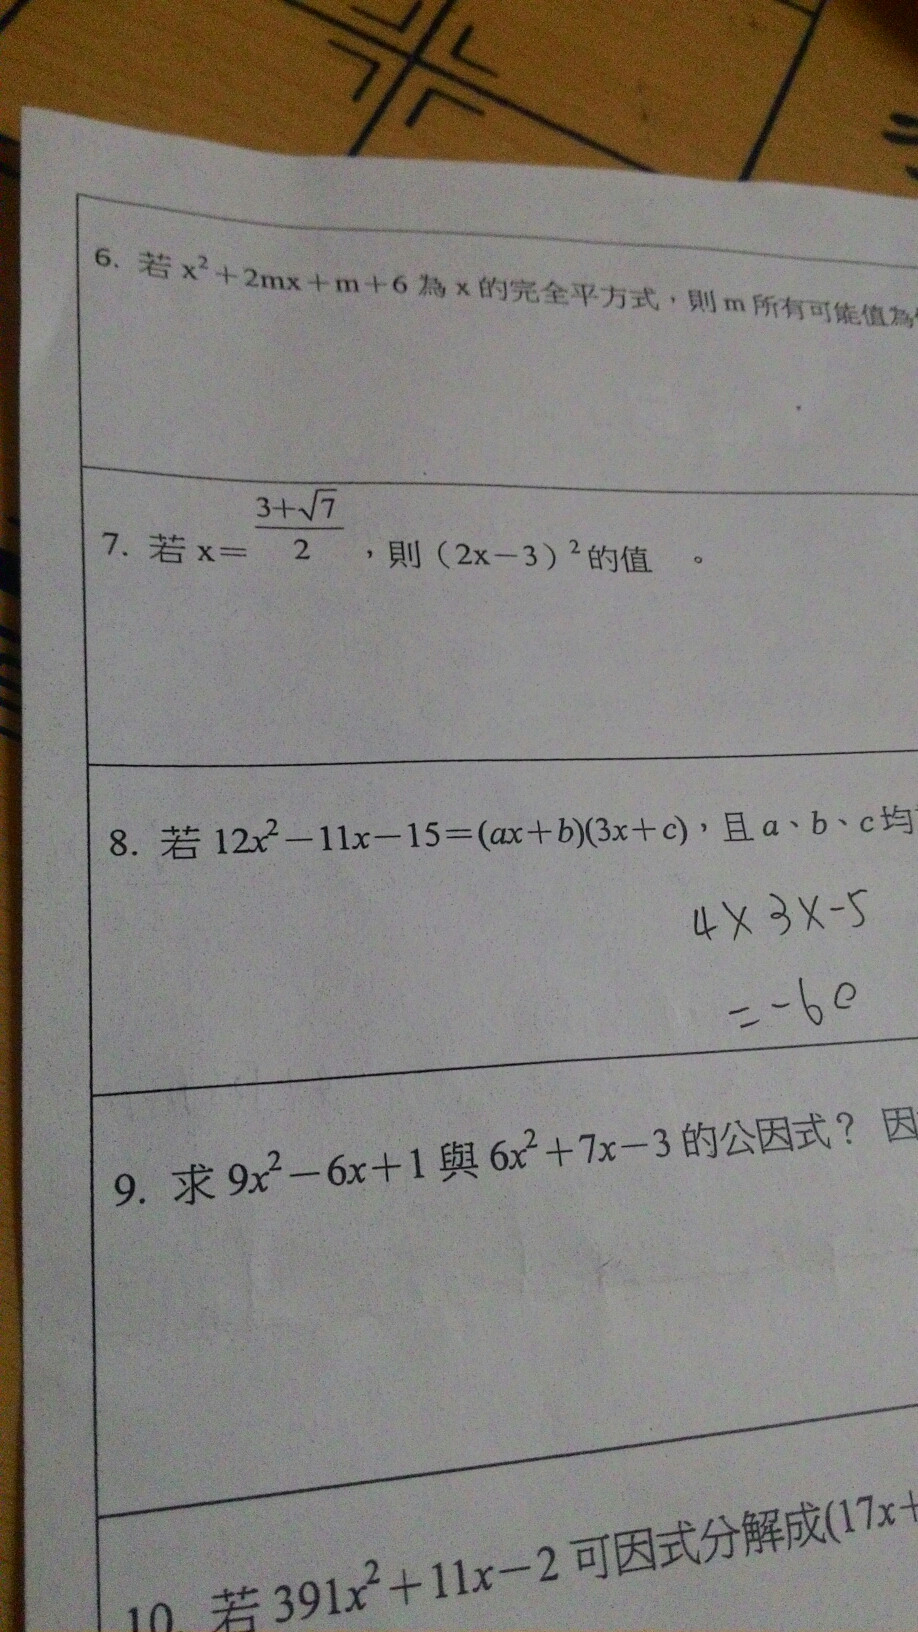 6. 若 x²+2mx+m+6 為 x 的完全平方式,則 m 所有可能值為
7. 若 x= (3+√7)/2 ,則(2x-3)²的值 。
8. 若 12x²-11x-15=(ax+b)(3x+c),且 a、b、c 均
4×3×-5
=-60
9. 求 9x²-6x+1 與 6x²+7x-3 的公因式? 因
10. 若 391x²+11x-2 可因式分解成(17x+